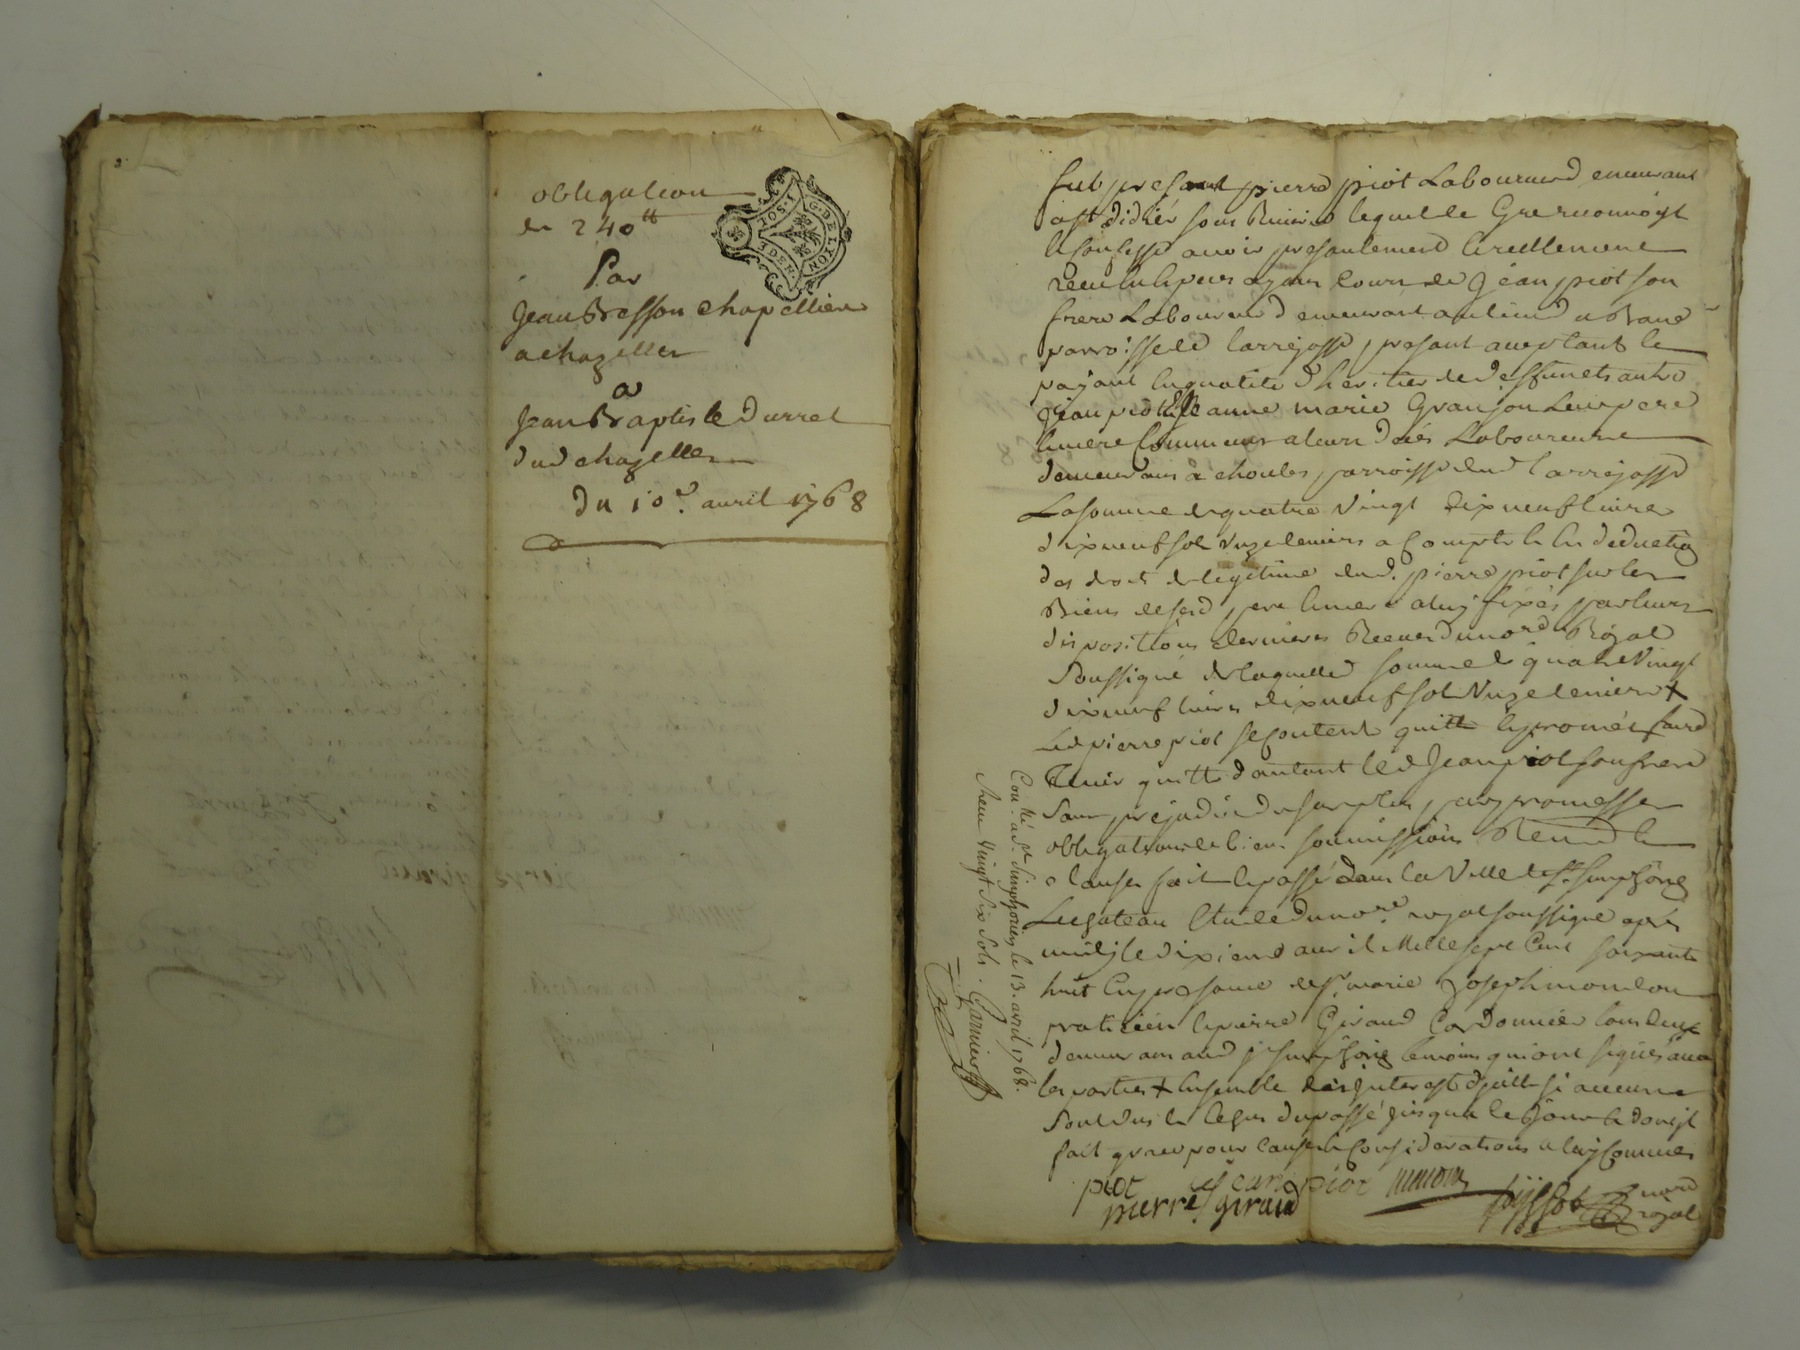 obligation
de 240tt
Par
Jean Bresson chapellier
a chazelles
a
Jean Baptiste Durret
dud chazelles
du 10e. avril 1768
G. DE LYON
DEN
fut presant pierre piot Laboureur demeurant
a st didier sous Riviere lequel de Gre reconnoist
et confesse avoir presantement et reellement
receu en especes ayans cours de Jean piot son
frere Laboureur demeurant au lieu d
parroisse de larrejasse, presant acceptant et
payant en qualite d'heritier de deffunets autre
Jean piot et anne marie Granjon leur pere
et mere communs a leurs deces Laboureurs
demeurans a choules, parroisse dud larrejasse
La somme de quatre vingt dix neuf livres
dixneuf sol unze deniers a compte et en deduction
des droit de legitime dud. pierre piot sur les
Biens de sesd pere et mere a luy fixés par leurs
dispositions dernieres Receues du nore Royal
soussigné de laquelle somme de quatre vingt
dixneuf livres dixneuf sol unze deniers +
Led pierre piot se contente quitte et promet faire
tenir quitte d'autant led Jean piot son frere
sans prejudice du surplus, par promesses
obligations de biens soumissions Renon et
clauses fait et passé dans la Ville de st simphorien
Le chateau Etude du nore. royal soussigné après
midy le dixieme avril Mille sept Cent soixante
huit En presance de sr. marie Joseph
praticien et pierre Giraud Cordonnier tous deux
demeurans aud st simphorien temoins qui ont signés avec
les parties + ensemble des Interest d'jcelle si aucuns
sont dus et echus du passé jusqu'a ce jour
fait grace pour causes et considerations a luy Connues
piot jean piot
pierre giraud
nore
royal
Conllé a st. Simphorien le 13. avril 1768.
Receu vingt six sols. Garnier